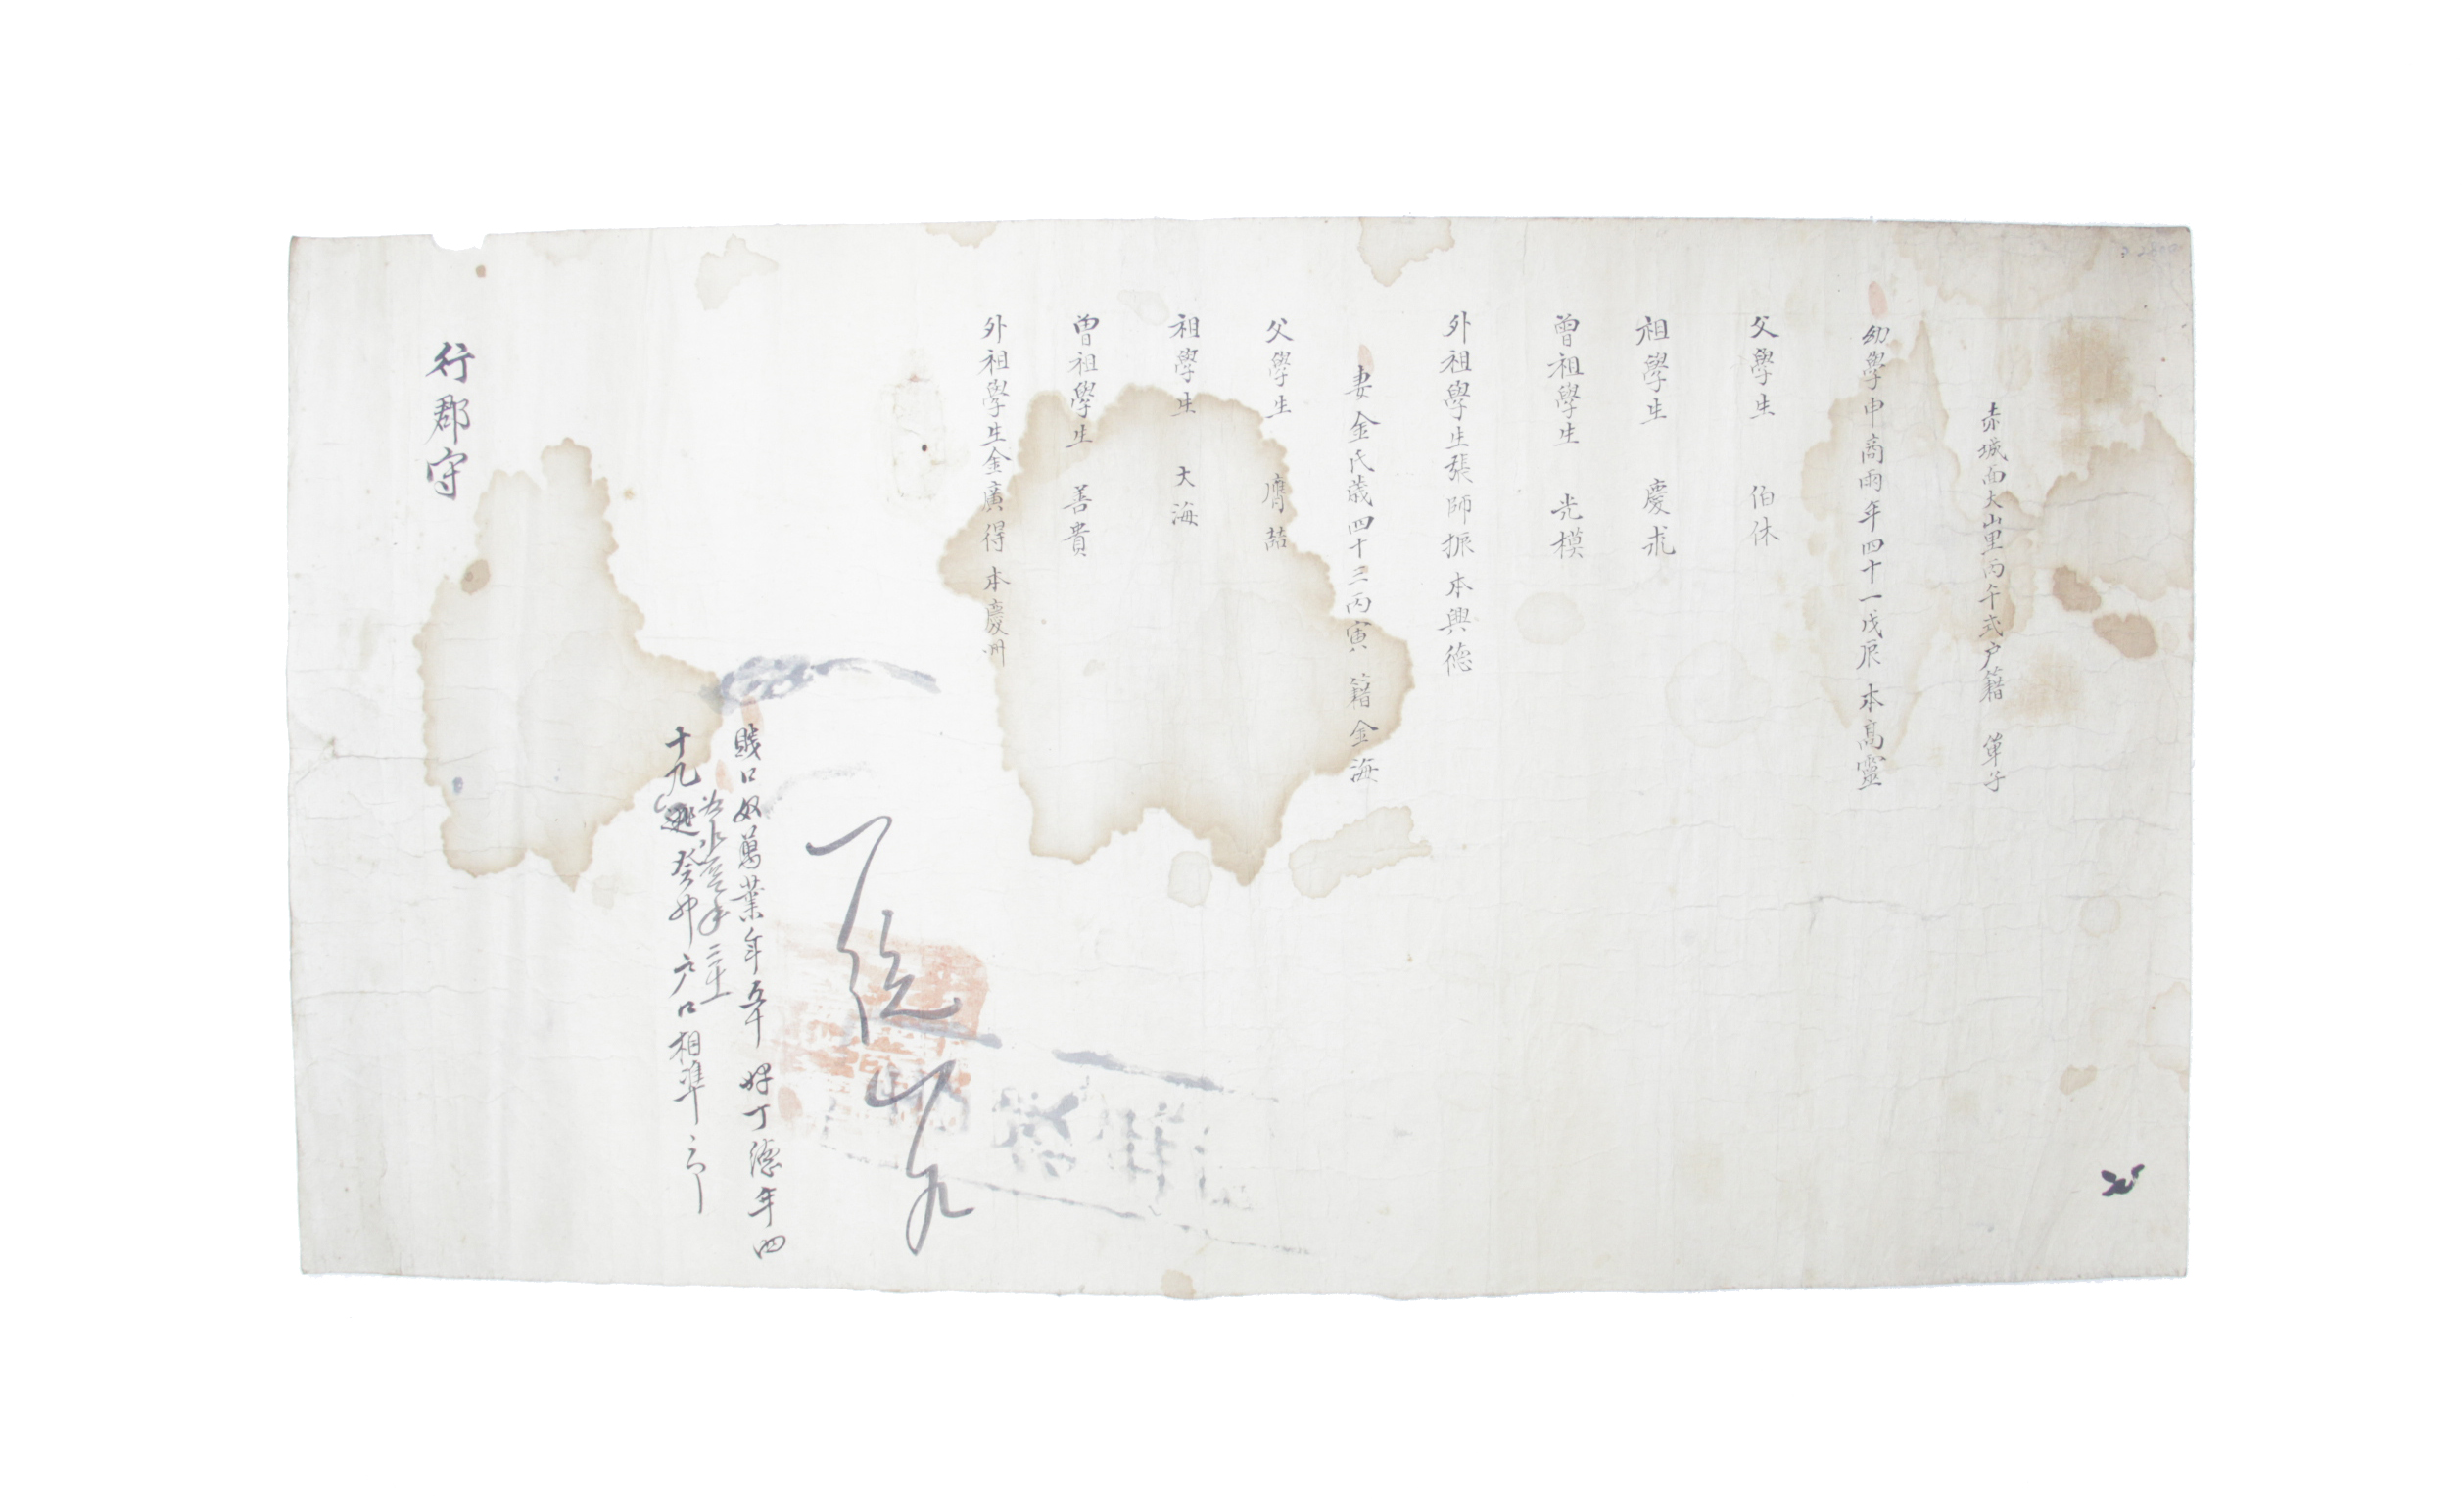 赤城面大山里丙午式户籍 單子
幼學申商雨年四十一戊辰本高靈
父學生 伯休
祖學生 慶
曾祖學生 光模
外祖學生張師振本興德
妻金氏歲四十三丙寅籍金海
父學生 膺喆
祖學生 大海
曾祖學生 善貴
外祖學生金廣得本慶州
賤口奴萬業年五十 婢丁德年四
十九逃癸卯户口相準
行郡守